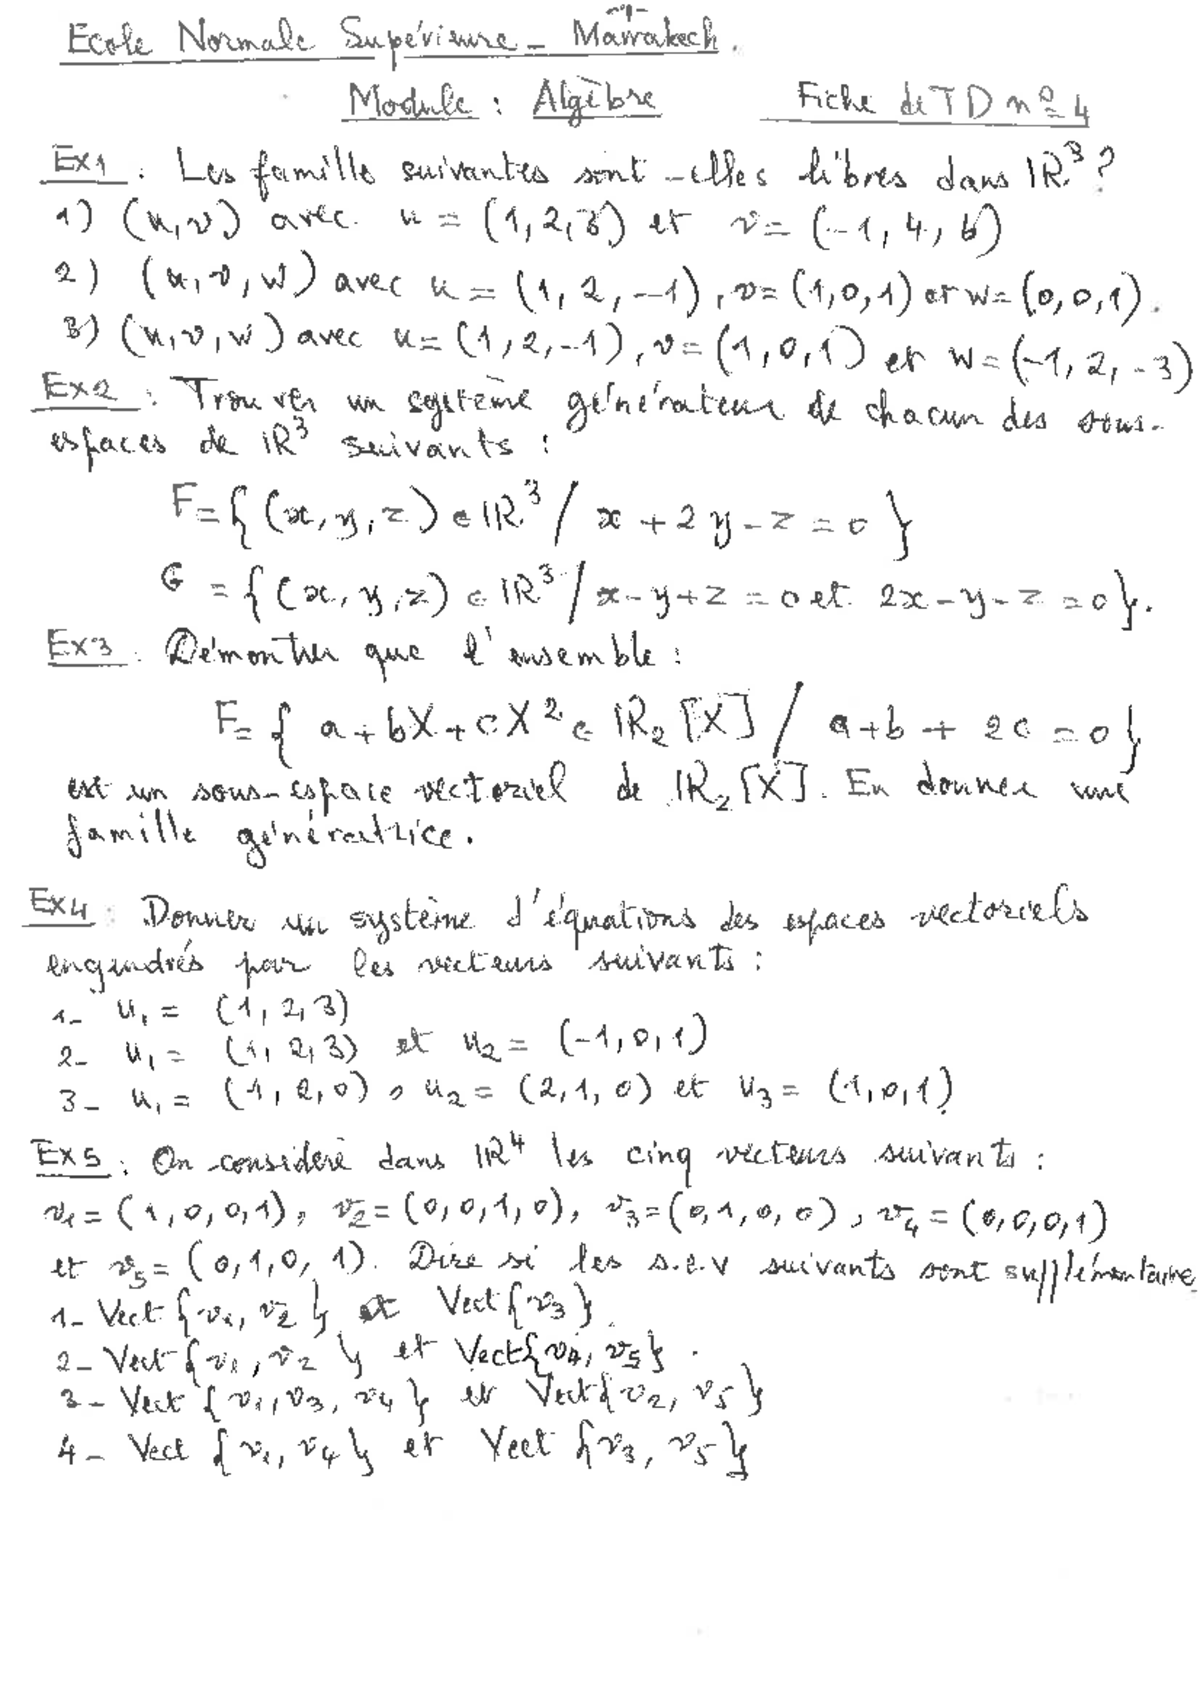 Ecole Normale Supérieure - Marrakech.
Module : Algèbre Fiche de TD n° 4
Ex1 : Les famille suivantes sont-elles libres dans IR³ ?
1) (u,v) avec u = (1,2,3) et v = (-1,4,6)
2) (u,v,w) avec u = (1,2,-1), v = (1,0,1) et w = (0,0,1).
3) (u,v,w) avec u = (1,2,-1), v = (1,0,1) et w = (-1,2,-3)
Ex2 : Trouver un système générateur de chacun des sous-
espaces de IR³ suivants :
F = { (x,y,z) ∈ IR³ / x + 2y - z = 0 }
G = { (x,y,z) ∈ IR³ / x - y + z = 0 et 2x - y - z = 0 }.
Ex3 : Démontrer que l'ensemble :
F = { a + bX + cX² ∈ IR₂[X] / a + b + 2c = 0 }
est un sous-espace vectoriel de IR₂[X]. En donner une
famille génératrice.
Ex4 : Donner un système d'équations des espaces vectoriels
engendrés par les vecteurs suivants :
1- u₁ = (1,2,3)
2- u₁ = (1,2,3) et u₂ = (-1,0,1)
3- u₁ = (1,2,0), u₂ = (2,1,0) et u₃ = (1,0,1)
Ex5 : On considère dans IR⁴ les cinq vecteurs suivants :
v₁ = (1,0,0,1), v₂ = (0,0,1,0), v₃ = (0,1,0,0), v₄ = (0,0,0,1)
et v₅ = (0,1,0,1). Dire si les s.e.v suivants sont supplémentaire
1- Vect {v₁, v₂} et Vect {v₃}.
2- Vect {v₁, v₂} et Vect {v₄, v₅}.
3- Vect {v₁, v₃, v₄} et Vect {v₂, v₅}
4- Vect {v₁, v₄} et Vect {v₃, v₅}